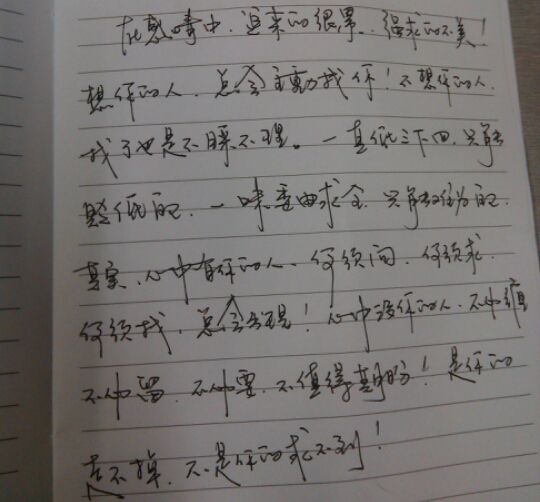 在感情中、追来的很累、强求的不美！
想你的人、总会主動找你！不想你的人、
找了也是不睬不理。一直低三下四、只能
贬低自己、一味委曲求全、只能改变自己、
真实、心中有你的人、何须问、何须求、
何须找、总会出现！心中没你的人、不必缠
不必留、不必要、不值得期盼！是你的
丢不掉、不是你的求不到！